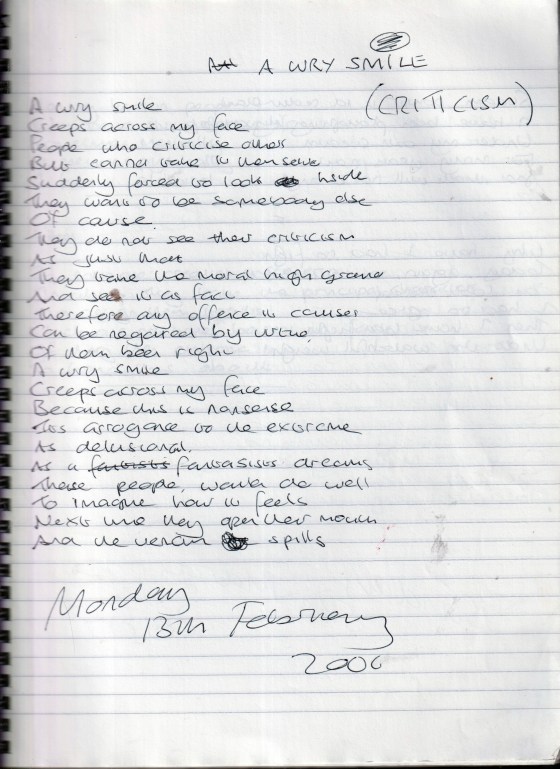 A WRY SMILE
(CRITICISM)
A wry smile
Creeps across my face
People who criticise other
But cannot take it themselves
Suddenly forced to look inside
They want to be somebody else
Of cause.
They do not see their criticism
As just that
They take the moral high ground
And see it as fact
Therefore any offence it causes
Can be negated by virtue
Of them been right
A wry smile
Creeps across my face
Because this is nonsense
Its arrogance to the extreme
As delusional.
As a fantasists dreams
These people would do well
To imagine how it feels
Next time they open their mouth
And the venom spills
Monday
13th February
2006